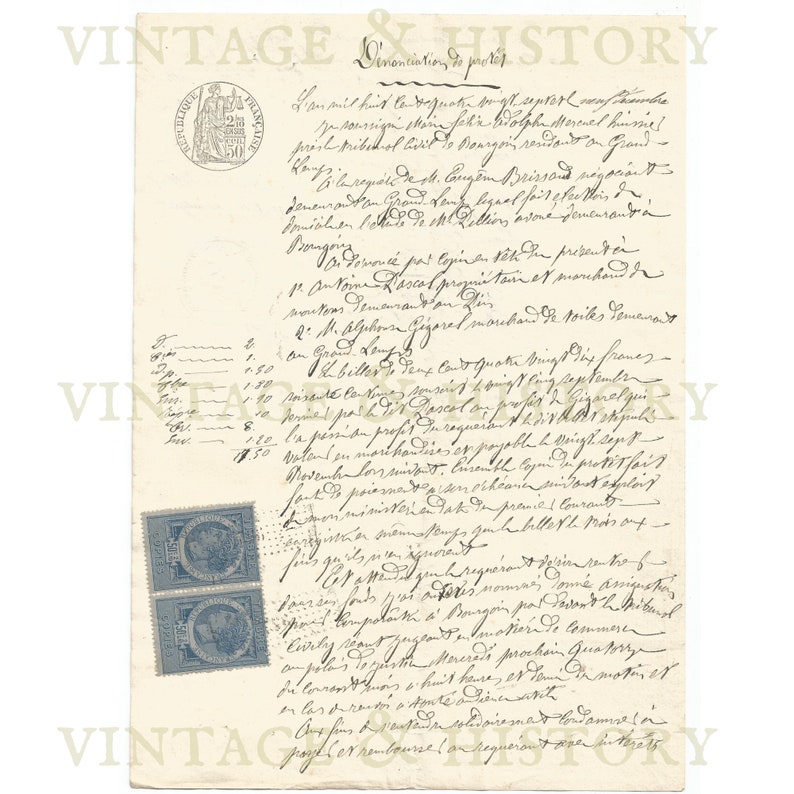 VINTAGE & HISTORY
Dénonciation de protêt
RÉPUBLIQUE FRANÇAISE
2/10 EN SUS
50 cen
L'an mil huit cent quatre vingt sept et neuf décembre
je soussigné Marie Félix Adolphe Mercuel huissier
près le tribunal civil de Bourgoin résidant au Grand-
Lemps
A la requête de M. Eugène Brissaud négociant
demeurant au Grand-Lemps lequel fait élection de
domicile en l'étude de Me avoué demeurant à
Bourgoin
Ai dénoncé par copie en tête du présent à
1° Antoine Pascal propriétaire et marchand de
moutons demeurant au
2° M. Alphonse Gigarel marchand de toiles demeurant
au Grand-Lemps
Le billet de deux cent quatre vingt dix francs
soixante centimes souscrit le vingt cinq septembre
dernier par le dit Pascal au profit de Gigarel qui
l'a passé au profit du requérant le dit billet stipulé
valeur en marchandises et payable le vingt sept
Novembre lors suivant. Ensemble copie du protêt fait
faute de paiement à son échéance suivant exploit
de mon ministère en date du premier courant
enregistré en même temps que le billet le trois aux
fins qu'ils n'en ignorent
Et attendu que le requérant désire rentrer
dans ses fonds j'ai aux nommés donné assignation
pour comparaître à Bourgoin par devant le tribunal
civil y séant jugeant en matière de commerce
au palais de justice Mercredi prochain quatorze
du courant mois à huit heures et demie du matin et
en cas de renvoi à toute audience utile
Aux fins de s'entendre solidairement condamner à
payer et rembourser au requérant avec intérêts
2.
1.
1.50
1.80
1.10
10
8.
1.20
VINTAGE & HISTORY
RÉPUBLIQUE FRANÇAISE
COPIES
50c
RÉPUBLIQUE FRANÇAISE
COPIES
50c
VINTAGE & HISTORY